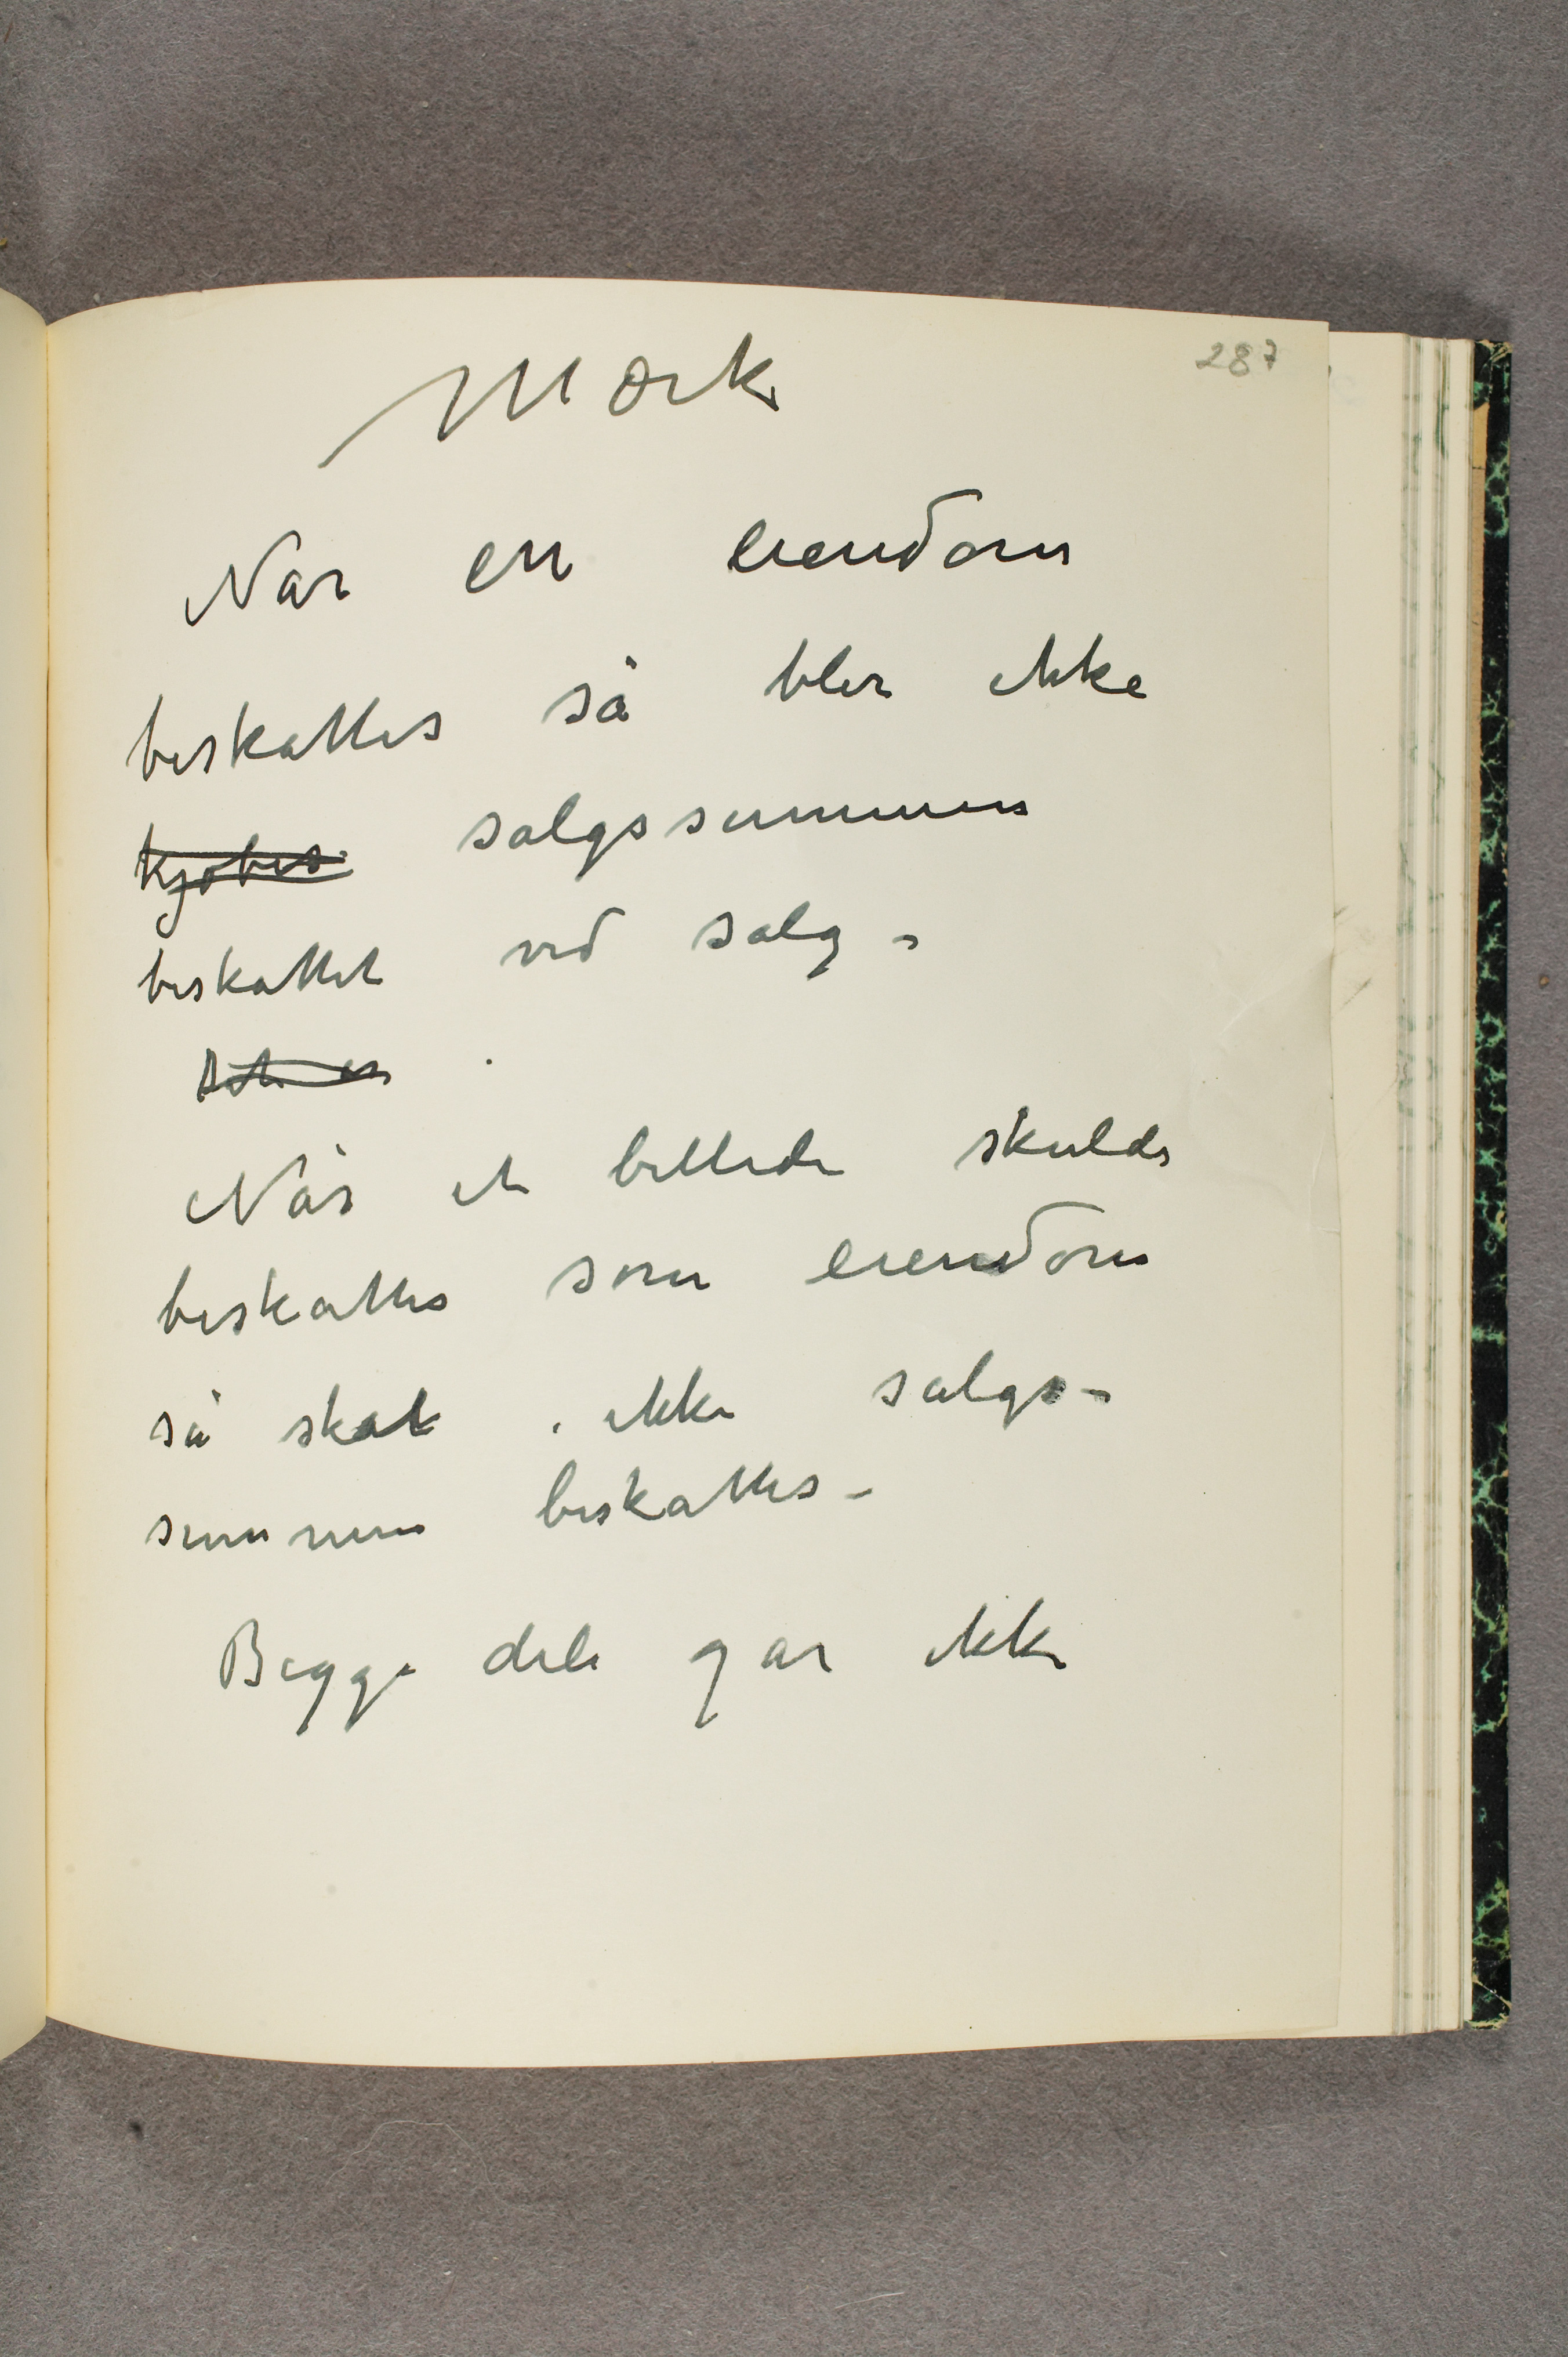 287
Mærk
Når en eiendom
beskattes så bler ikke
kjøbes salgssummen
beskattet ved salg –
Det er
Når et billede skulde
beskattes som eiendom
så skal ikke salgs-
summen beskattes –
Begge dele gar ikke